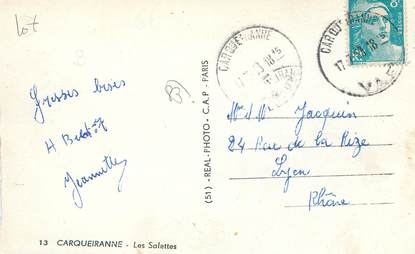 lot
83
Grosses bises
H
Jeannette
(51) - REAL-PHOTO - C.A.P - PARIS
CARQUEIRANNE
18 15
CARQUEIRANNE
18 15
VAR
Mr & Mme Jacquin
24 Rue de la Rize
Lyon
Rhône
13 CARQUEIRANNE - Les Salettes